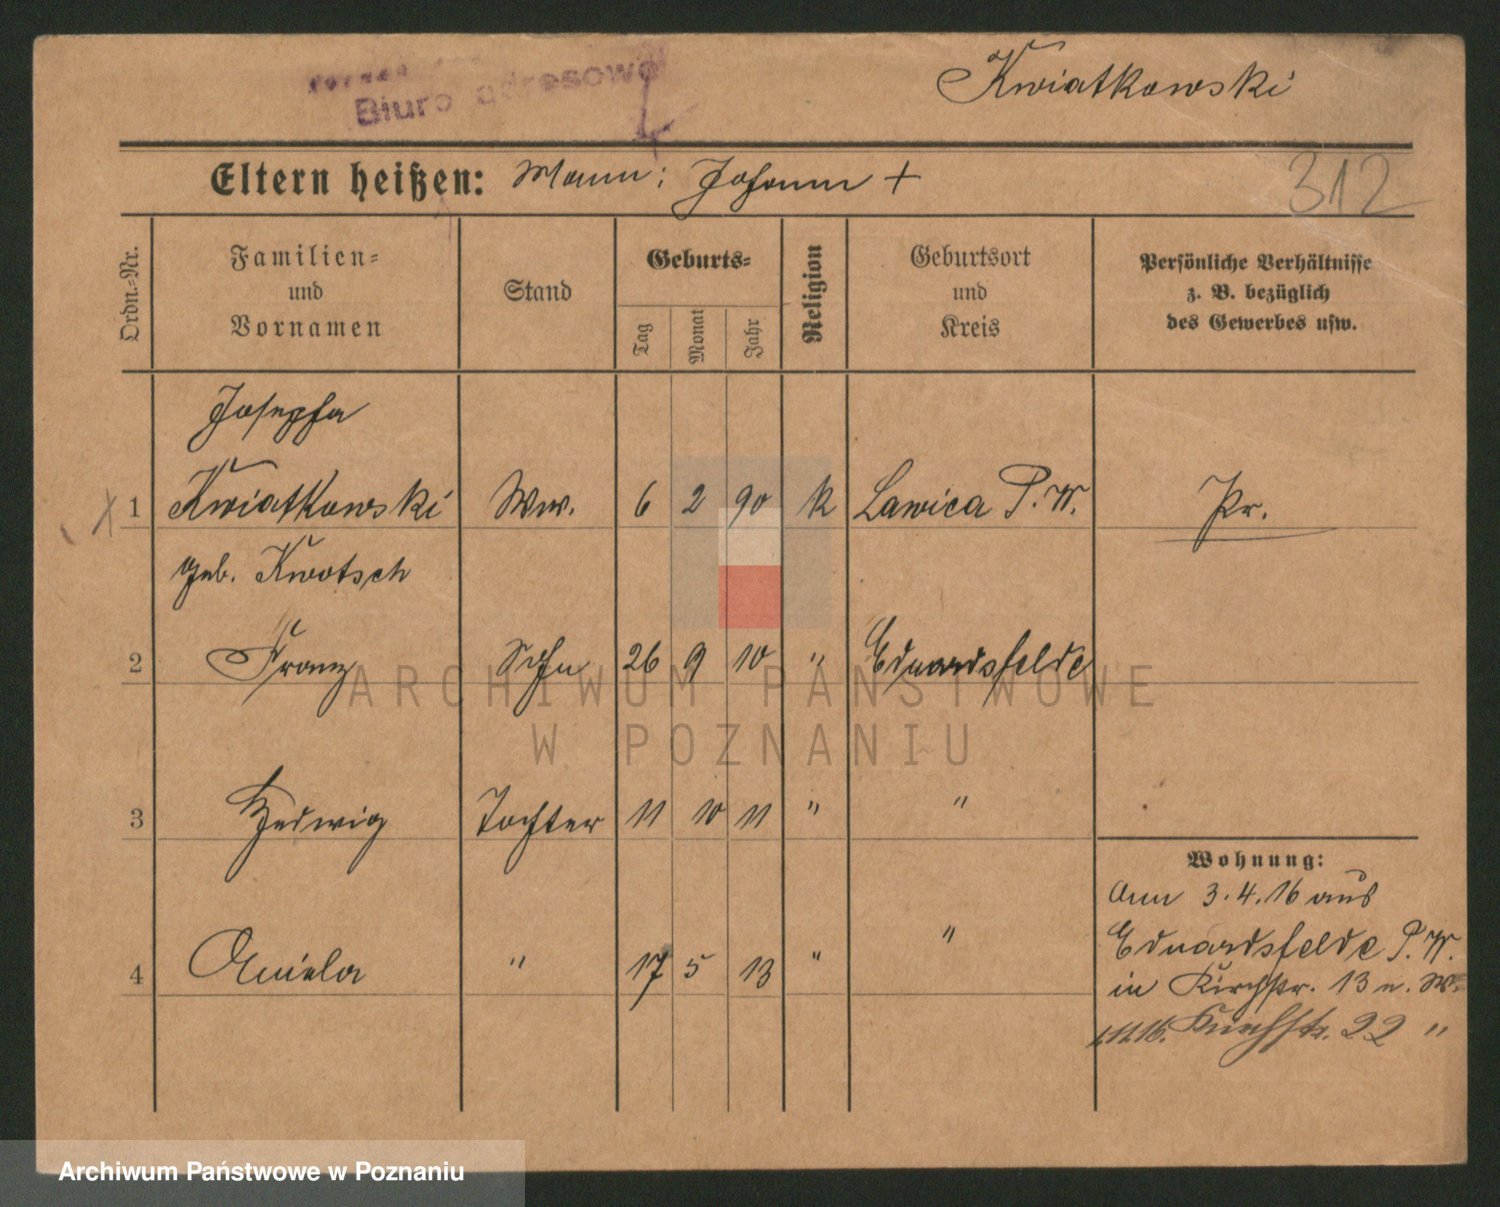 Biuro adresowe
Kwiatkowski
Eltern heißen: Mann: Johann +
312
Ordn.-Nr.
Familien-
und
Vornamen
Stand
Geburts-
Tag
Monat
Jahr
Religion
Geburtsort
und
Kreis
Persönliche Verhältnisse
z. B. bezüglich
des Gewerbes usw.
Josepha
1 Kwiatkowski Ww. 6 2 90 k Lawica P. W. Pr.
geb. Kwotsch
2 Franz Sohn 26 9 10 " Eduardsfelde
3 Hedwig Tochter 11 10 11 " "
4 Aniela " 17 5 13 " "
Wohnung:
Am 3.4.16 aus
Eduardsfelde P. W.
in Kirchstr. 13 n. W.
1.11.16. Kirchstr. 22 "
ARCHIWUM PAŃSTWOWE
W POZNANIU
Archiwum Państwowe w Poznaniu